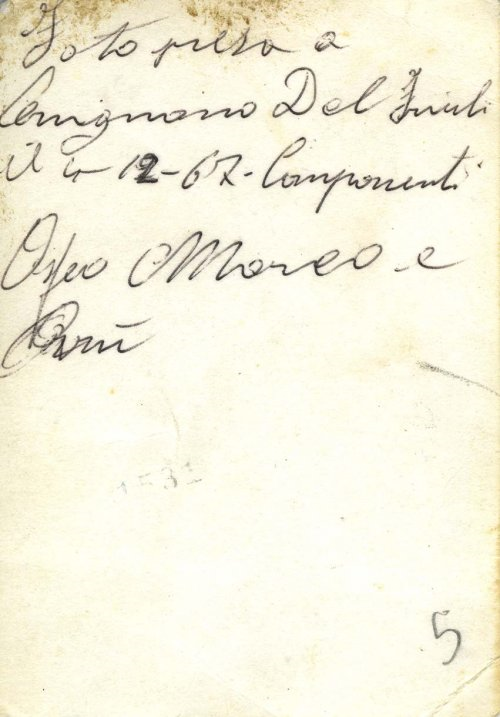 Foto presa a
Carignano Del Friuli
il 10-12-67-Componenti
Orfeo Marco e
1532
5